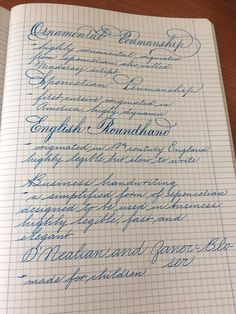 Ornamental Penmanship
- highly ornamental, originated
from Spencerian and
script
Spencerian Penmanship
- first cursive originated in
America, higly dynamic
English Roundhand
- originated in 17th century England
highly legible but slow to write
Business handwriting
- a simplified form of Spencerian
designed to be used in business
highly legible fast and
elegant
D'Nealian and Zaner-Blo-
ser
- made for children